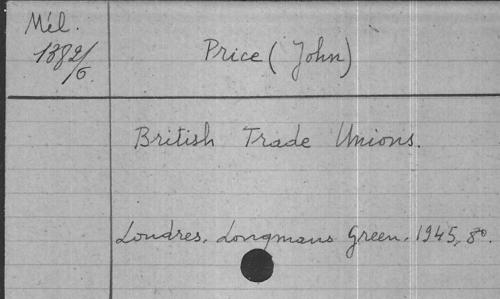 Mél.
1382/6.
Price (John)
British Trade Unions.
Londres, Longmans Green, 1945, 8º.